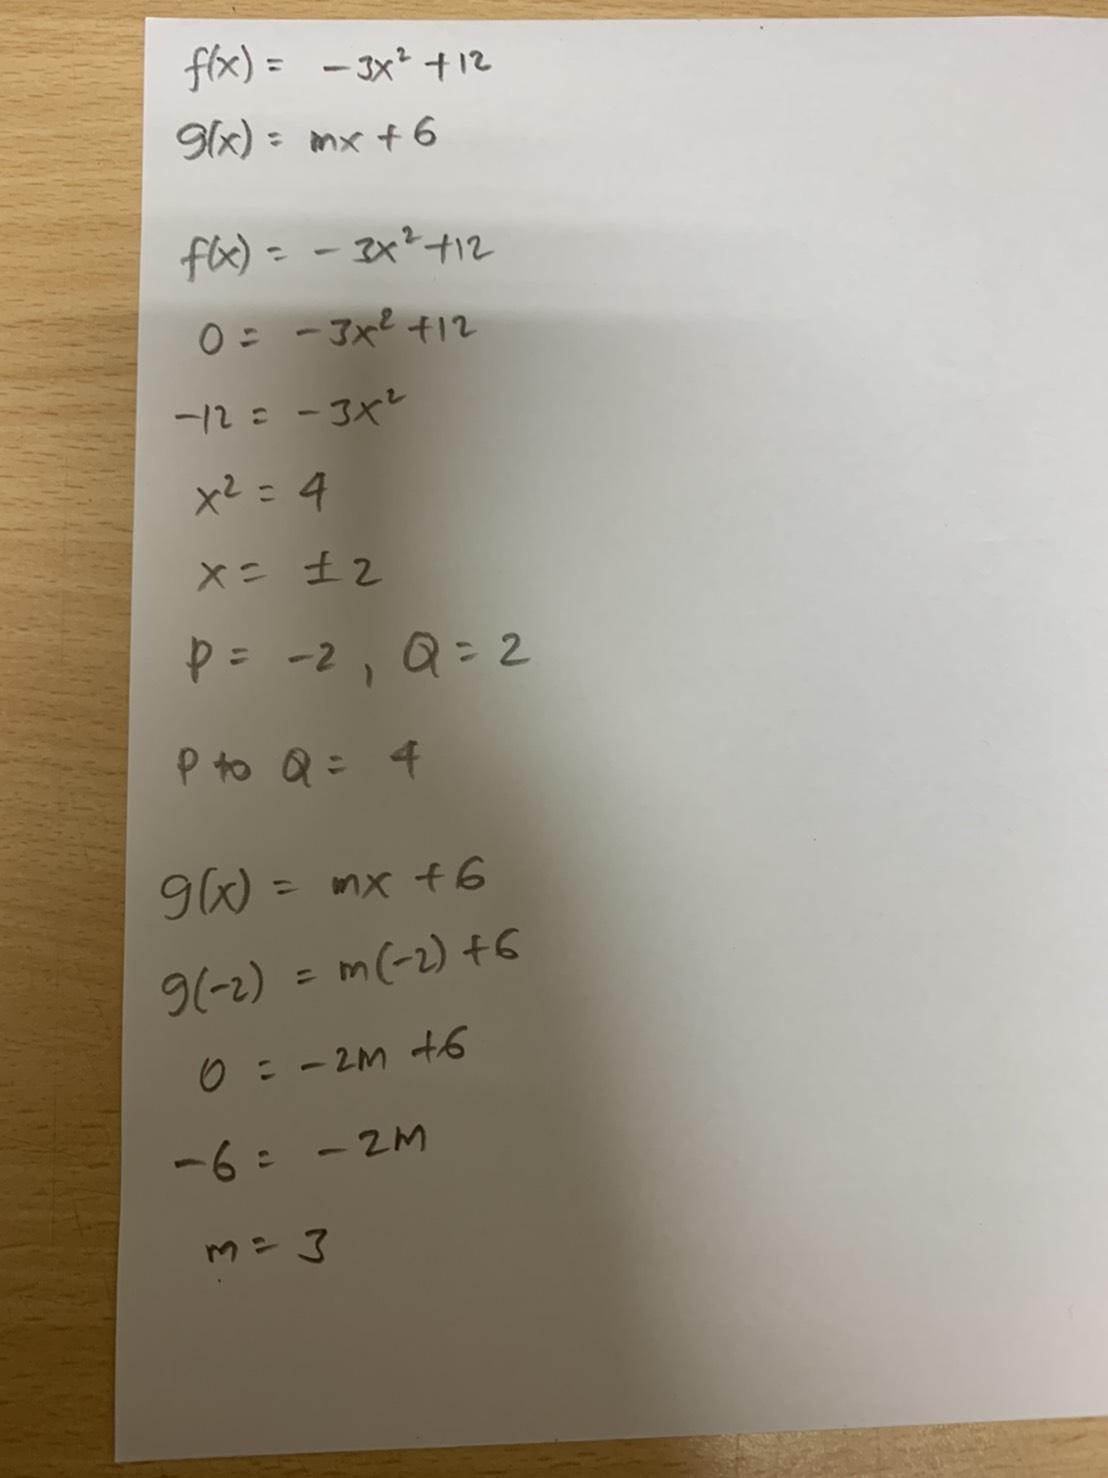 f(x) = -3x² +12
g(x) = mx + 6
f(x) = -3x² +12
0 = -3x² +12
-12 = -3x²
x² = 4
x = ±2
P = -2, Q = 2
P to Q = 4
g(x) = mx + 6
g(-2) = m(-2) + 6
0 = -2m + 6
-6 = -2m
m = 3